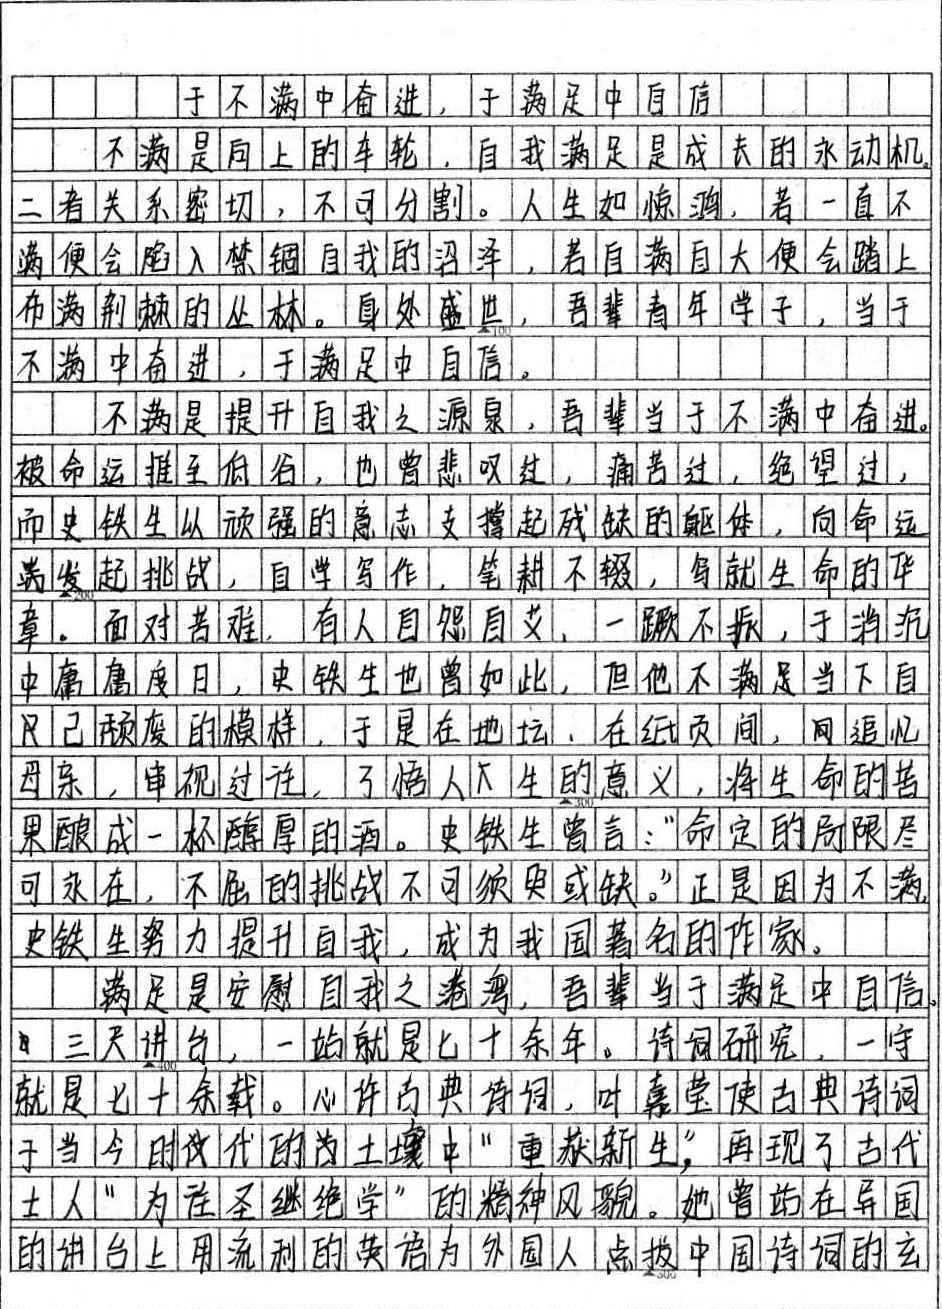 于不满中奋进，于满足中自信
不满是向上的车轮，自我满足是成长的永动机。
二者关系密切，不可分割。人生如惊鸿，若一直不
满便会陷入禁锢自我的沼泽，若自满自大便会踏上
布满荆棘的丛林。身处盛世，吾辈青年学子，当于
▲100
不满中奋进，于满足中自信。
不满是提升自我之源泉，吾辈当于不满中奋进。
被命运推至低谷，也曾悲叹过，痛苦过，绝望过，
而史铁生以顽强的意志支撑起残缺的躯体，向命运
发起挑战，自学写作，笔耕不辍，写就生命的华
▲200
章。面对苦难，有人自怨自艾，一蹶不振，于消沉
中庸庸度日，史铁生也曾如此，但他不满足当下自
己颓废的模样，于是在地坛，在纸页间，追忆
母亲，审视过往，了悟人生的意义，将生命的苦
▲300
果酿成一杯醇厚的酒。史铁生曾言：“命定的局限尽
可永在，不屈的挑战不可须臾或缺。”正是因为不满，
史铁生努力提升自我，成为我国著名的作家。
满足是安慰自我之港湾，吾辈当于满足中自信。
三尺讲台，一站就是七十余年。诗词研究，一守
▲400
就是七十余载。心许古典诗词，叶嘉莹使古典诗词
于当今时代的土壤中“重获新生”，再现了古代
士人“为往圣继绝学”的精神风貌。她曾站在异国
的讲台上用流利的英语为外国人点拨中国诗词的玄
▲500